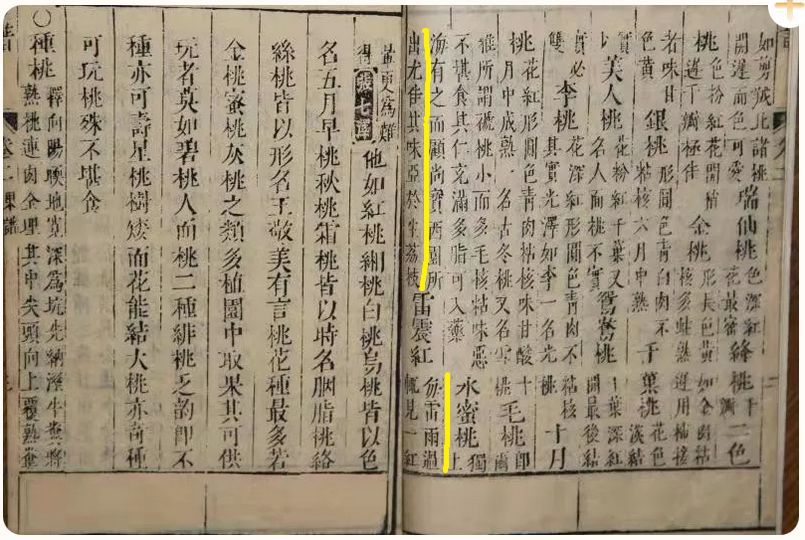 如剪絨此諸桃開遲而色可愛瑞仙桃色深紅花最密絳桃千瓣二色
桃色粉紅花開稍遲千瓣極佳金桃形長色黃如金肉粘核多蛀熟遲用柿接
者味甘色黃銀桃形圓色青白肉不粘核六月中熟千葉桃花色淡結
實美人桃花粉紅千葉又名人面桃不實鴛鴦桃千葉深紅開最後結
實必雙李桃花深紅形圓色青肉不粘核其實光澤如李一名光桃十月
桃花紅形圓色青肉粘核味甘酸十月中成熟一名古冬桃又名雪桃毛桃即爾
雅所謂褫桃小而多毛核粘味惡不堪食其仁充滿多脂可入藥水蜜桃獨上
海有之而顧尚寶西園所出尤佳其味亞於生荔枝雷震紅每雷雨過輒見一紅
暈更為難得張七澤他如紅桃緗桃白桃烏桃皆以色
名五月早桃秋桃霜桃皆以時名胭脂桃絡
絲桃皆以形名王敬美有言桃花種最多若
金桃蜜桃灰桃之類多植園中取果其可供
玩者莫如碧桃人面桃二種緋桃乏韵即不
種亦可壽星桃樹矮而花能結大桃亦奇種
可玩桃殊不堪食
○種桃擇向陽暖地寬深為坑先納溼牛糞將熟桃連肉全埋其中尖頭向上覆熟糞
卷二果譜